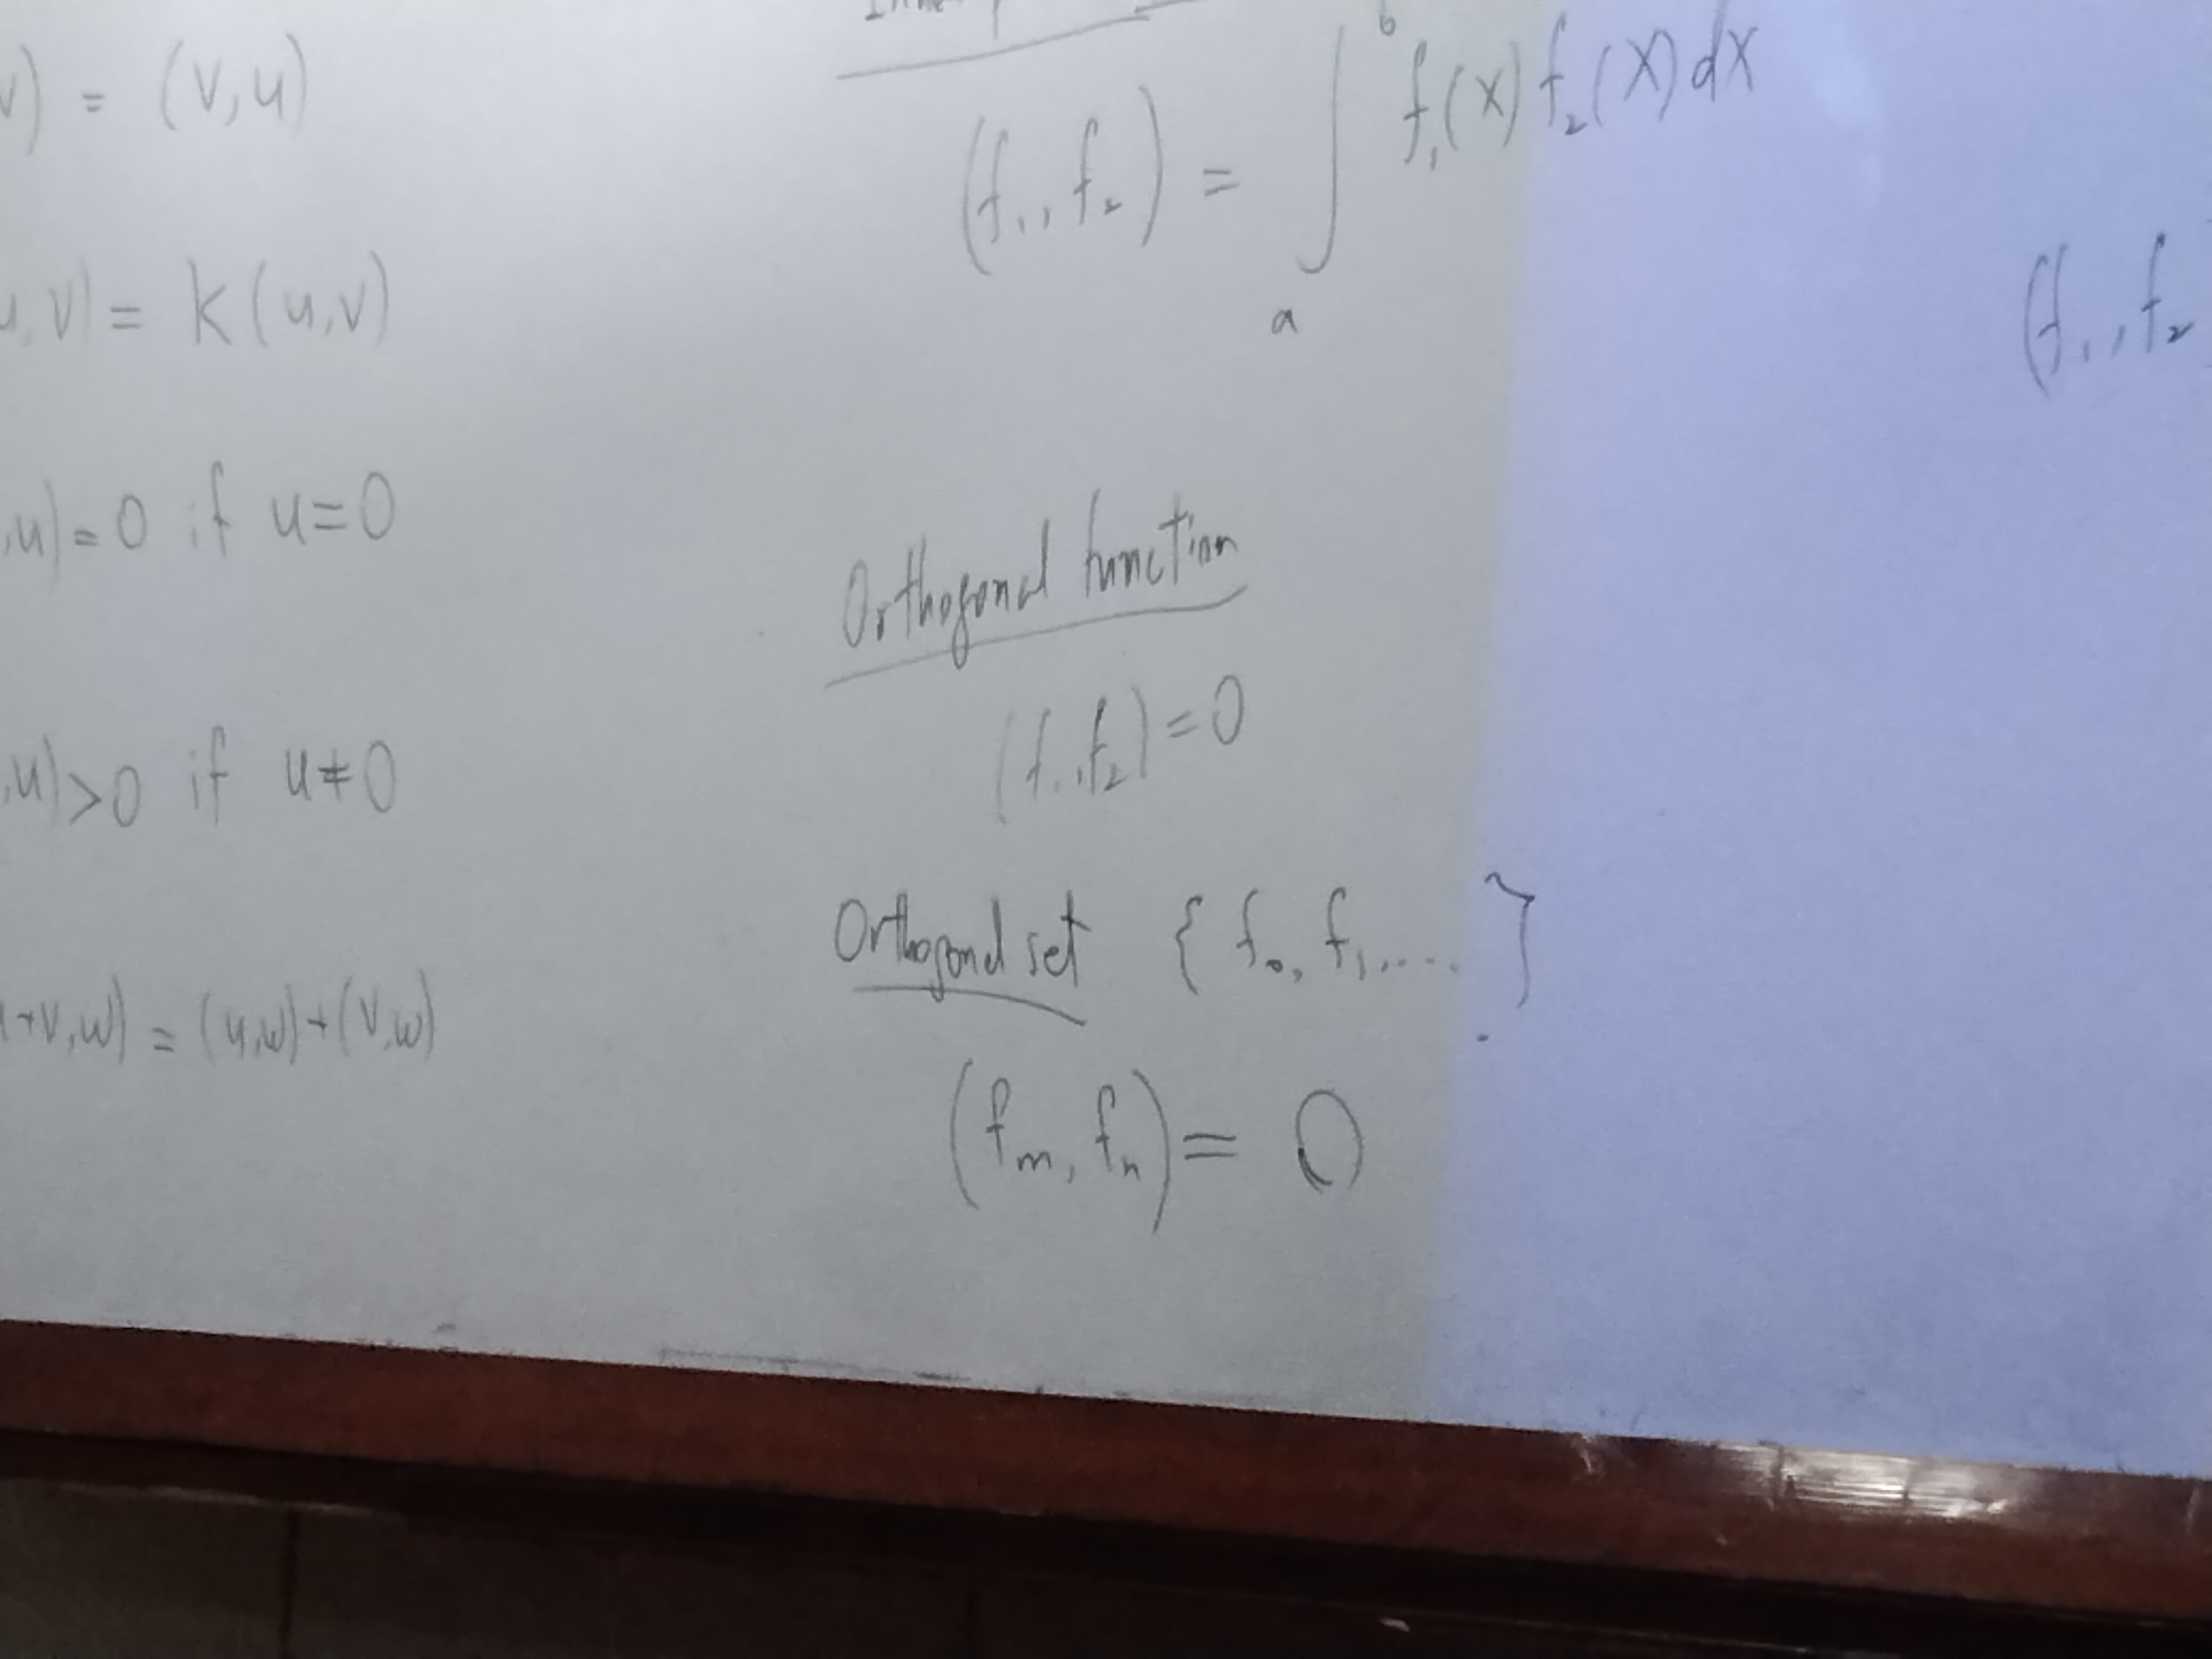 v) = (v,u)
u,v) = k(u,v)
,u) = 0 if u=0
,u) >0 if u≠0
u+v,w) = (u,w)+(v,w)
(f₁,f₂) = ∫ₐᵇ f₁(x) f₂(x) dx
Orthogonal function
(f₁,f₂)=0
Orthogonal set { f₀, f₁,.... }
(fₘ, fₙ) = 0
(f₁,f₂